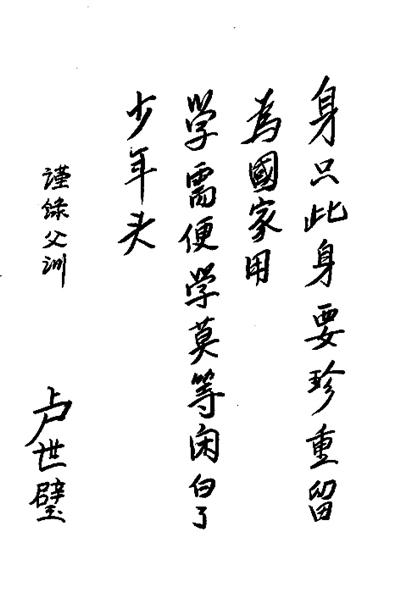 身只此身要珍重留
為國家用
学需便学莫等闲白了
少年头
谨錄父训
卢世璧